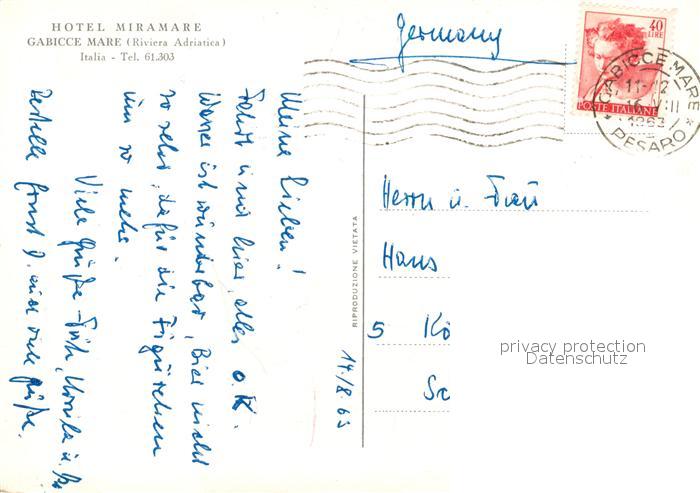 HOTEL MIRAMARE
GABICCE MARE (Riviera Adriatica)
Italia - Tel. 61.303
Germany
40
LIRE
POSTE ITALIANE
GABICCE MARE
11-12
1963
PESARO
Meine Lieben!
Fahrt und hier, alles o.K.
Wasser ist wunderbar, Bier nicht
so sehr, dafür die Figürchen
um so mehr.
Viele Grüße - Fritz, Ursula u.
Bestelle Ernst J. auch viele Grüße.
RIPRODUZIONE VIETATA
14/8 63
Herrn u. Frau
Hans
5 Kö
privacy protection
Datenschutz